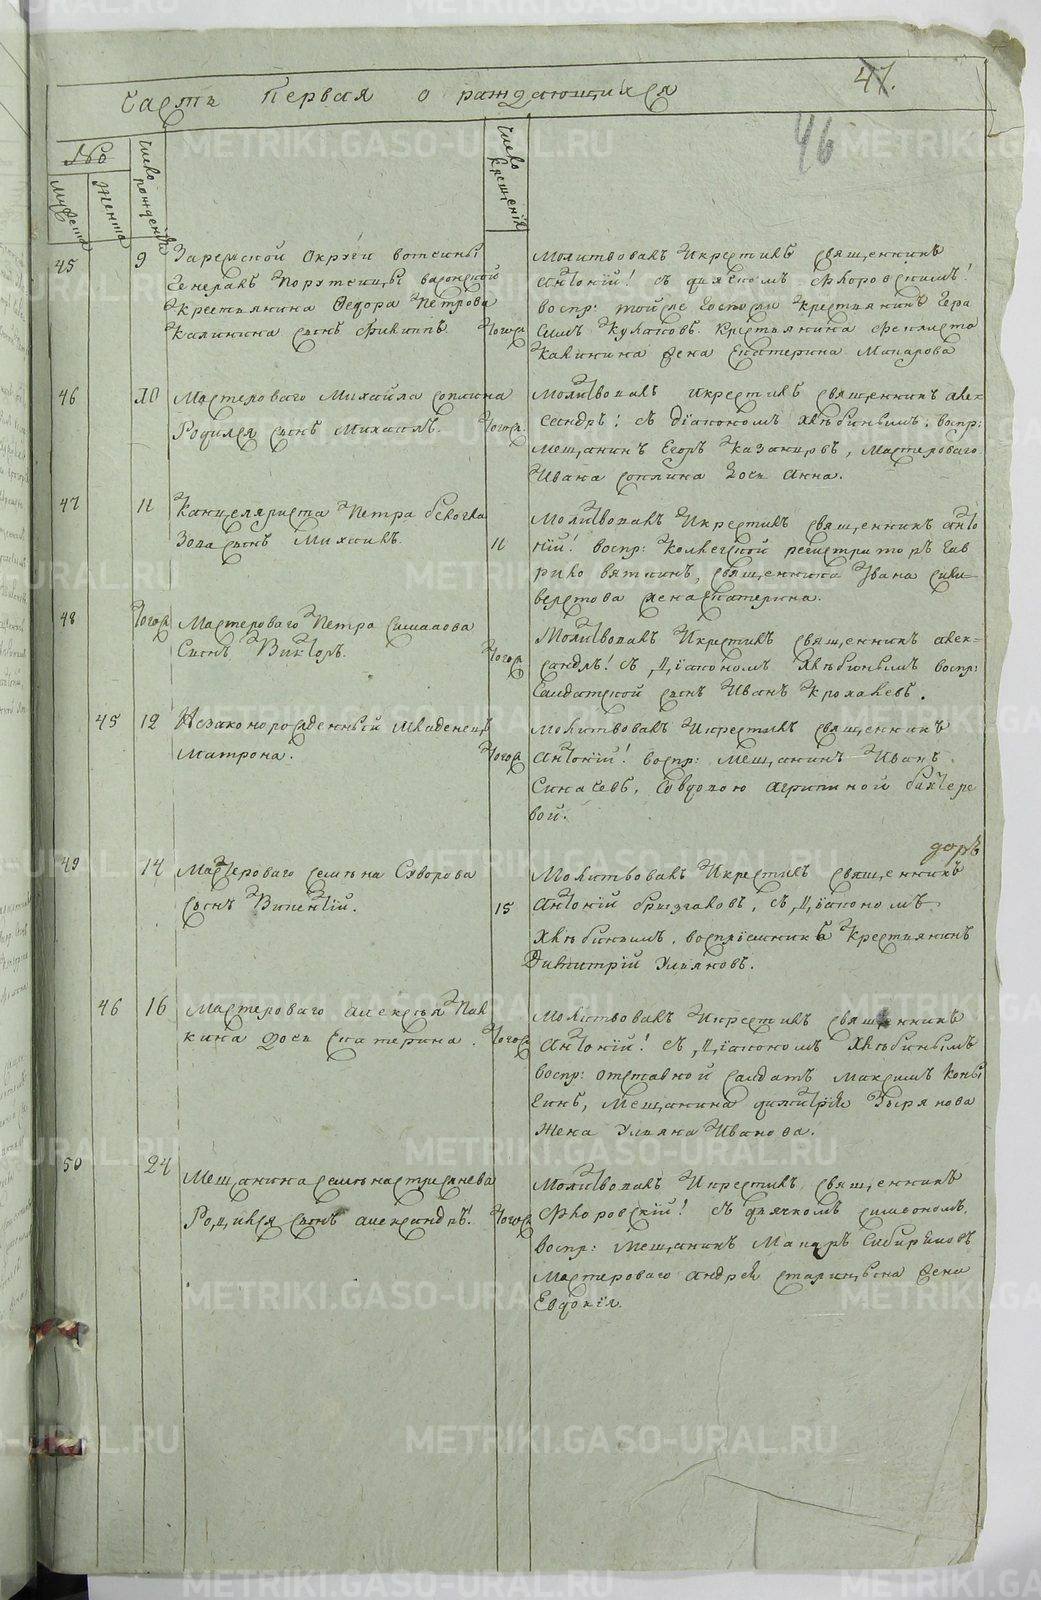 47.
46
Часть первая о раждающихся
№
Мужеска
Женска
Число рождения
Число крещенія
45 9
Генерала Порутчицы
Крестьянина Федора Петрова
Калинина сынъ Филиппъ Тогожъ
Молитвовалъ И крестилъ священникъ
Антоній! съ Флоровскимъ!
воспр: тойже Госпожи крестьянинъ Гера
симъ Кулаковъ. Крестьянина Феклиста
Калинина жена Екатерина Макарова
46 10
Мастероваго Михайла
Родился сынъ Михаилъ. Тогожъ
Молитвовалъ и крестилъ священникъ Алек-
сандръ! съ Діакономъ Хлѣбинымъ, воспр:
мещанинъ Егоръ Казанцовъ, Мастероваго
Ивана дочь Анна.
47 11
Канцеляриста Петра
сынъ Михаилъ. 11
Молитвовалъ И крестилъ священникъ Анто
ній! воспр: Колежской регистраторъ Гав
рило Вяткинъ, священника Ивана Сили-
верстова жена Екатерина.
48 Тогожъ
Мастероваго Петра
Сынъ Викторъ. Тогожъ
Молитвовалъ И крестилъ священникъ Алек-
сандръ! съ Діакономъ Хлѣбинымъ воспр:
Салдатской сынъ Иванъ
45 12
Незаконорожденный младенецъ
Матрона. Тогожъ
Молитвовалъ И крестилъ священникъ
Антоній! воспр: Мещанинъ Иванъ
Синасевъ, Совдовою Агрипиной Бахтере
вой.
49 14
Мастероваго Семена Суворова
сынъ Викентій. 15
доръ
Молитвовалъ И крестилъ священникъ
Антоній Брызгаловъ, съ Діакономъ
Хлѣбинымъ, воспріемникъ крестьянинъ
Димитрій Ульяновъ.
46 16
Мастероваго Алексѣя Пал
кина дочь Екатерина. Тогожъ
Молитвовалъ И крестилъ священникъ
Антоній! съ Діакономъ Хлѣбинымъ
воспр: отставной салдатъ Максимъ Коны
гинъ, Мещанина Димитрія Зырянова
жена Ульяна Иванова.
50 24
Мещанина Семена
Родился сынъ Александръ. Тогожъ
Молитвовалъ И крестилъ священникъ
Флоровскій! съ дьячкомъ Симеономъ,
воспр: Мещанинъ Макаръ Сибиряковъ
Мастероваго Андрея Старицына жена
Евдокія.
METRIKI.GASO-URAL.RU